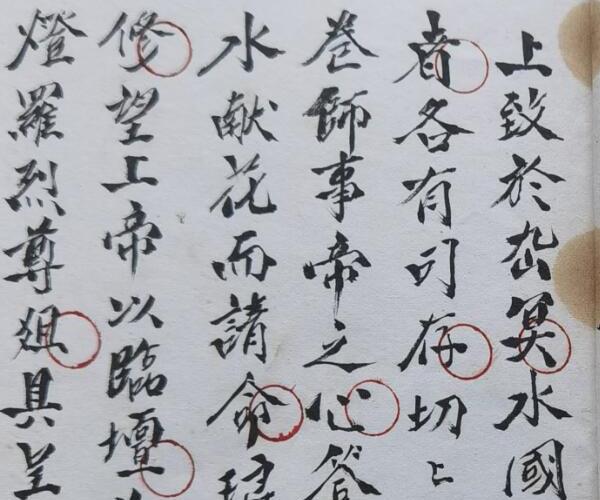 上致於岳冥水國
者各有司存切上
卷師事帝之心答
水献花而請命
修望上帝以臨壇
燈羅烈尊爼具呈